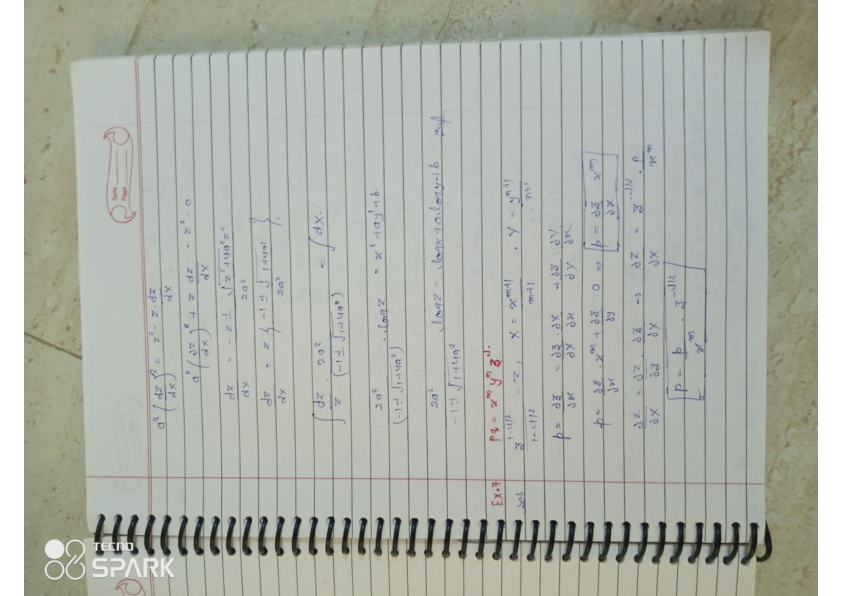 Date
Page
a² (dz/dX)² = z² - z.dz/dX
a² (dz/dX)² + z dz/dX - z² = 0
dz/dX = -z ± √z²+4a²z² / 2a²
dz/dX = z { -1 ± √1+4a² / 2a² }
∫ dz/z . 2a²/(-1±√1+4a²) = ∫dX
2a²/(-1±√1+4a²) . log z = x'+ay'+b
2a²/-1±√1+4a² log z = log x + a log y + b
Ex.7. pq = x^m y^n z^l
z^1-l/2 / 1-l/2 = Z, X = x^m+1 / m+1, Y = y^n+1 / n+1
p = ∂z/∂x = ∂z/∂X . ∂X/∂x + ∂z/∂Y . ∂Y/∂x
p = ∂z/∂x . x^m + ∂z/∂y . 0 ⇒ p = ∂z/∂X x^m
∂Z/∂X = ∂Z/∂z . ∂z/∂X → ∂Z/∂X = z^-l/2 . p/x^m
P = p/x^m . z^-l/2
TECNO
SPARK